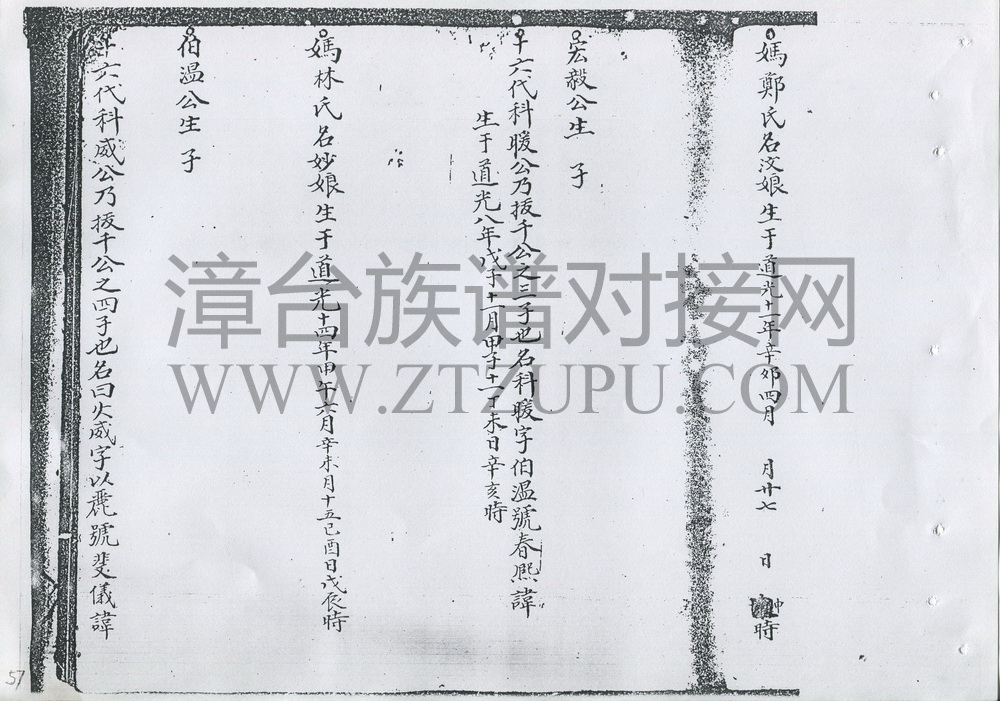 媽鄭氏名汶娘生于道光十一年辛卯四月 月廿七 日 時
宏毅公生 子
十六代科暖公乃振千公之三子也名科暖字伯温號春熙諱
生于道光八年戊子十一月甲子十一丁未日辛亥時
媽林氏名妙娘生于道光十四年甲午六月辛未月十五己酉日戊辰時
伯温公生 子
十六代科威公乃振千公之四子也名曰火威字以麃號斐儀諱
漳台族谱对接网
WWW.ZTZUPU.COM
57